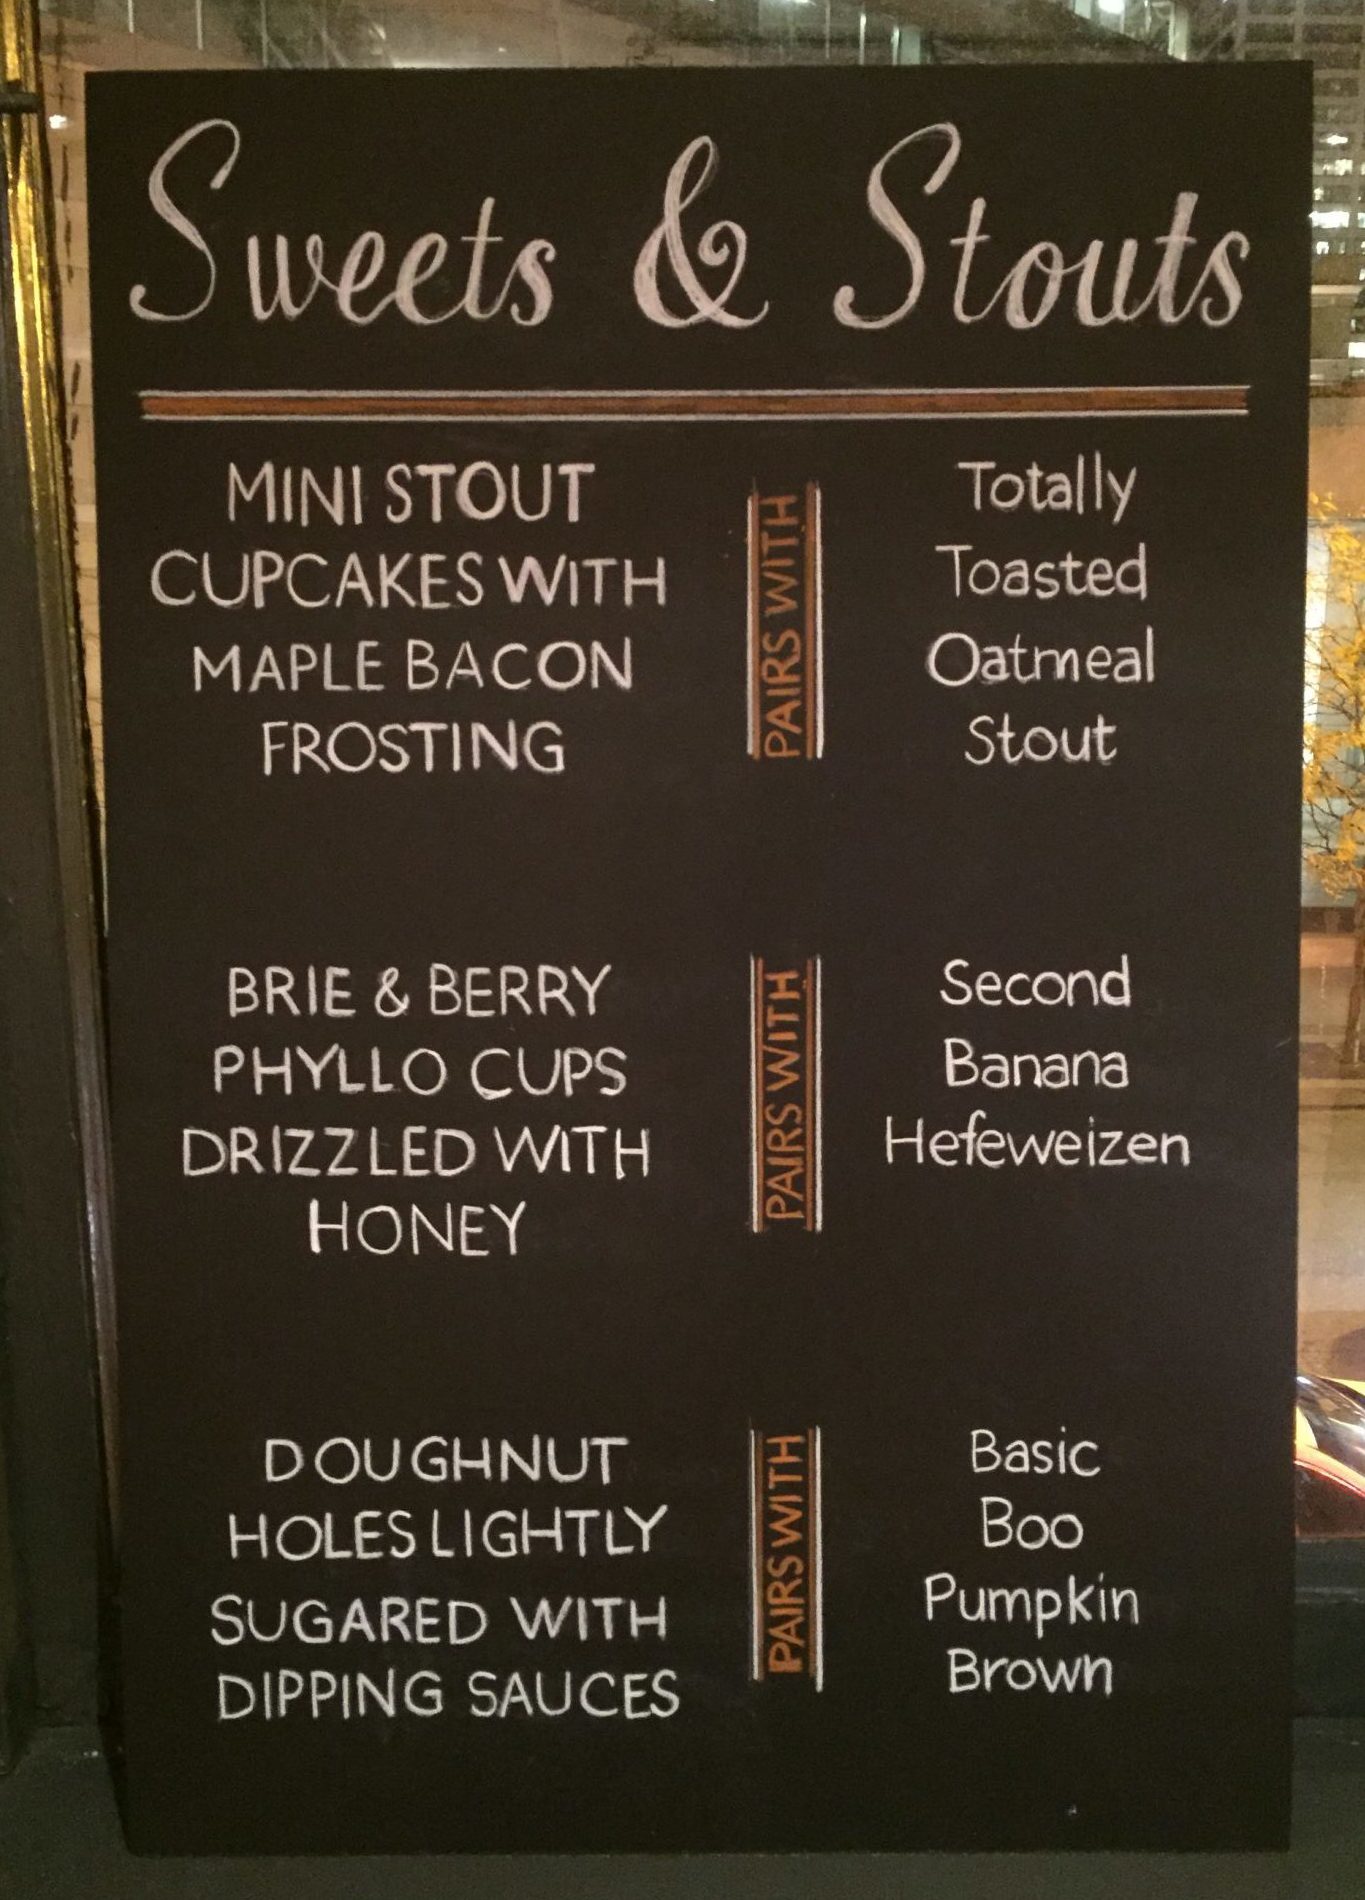 Sweets & Stouts
MINI STOUT
CUPCAKES WITH
MAPLE BACON
FROSTING
PAIRS WITH
Totally
Toasted
Oatmeal
Stout
BRIE & BERRY
PHYLLO CUPS
DRIZZLED WITH
HONEY
PAIRS WITH
Second
Banana
Hefeweizen
DOUGHNUT
HOLES LIGHTLY
SUGARED WITH
DIPPING SAUCES
PAIRS WITH
Basic
Boo
Pumpkin
Brown